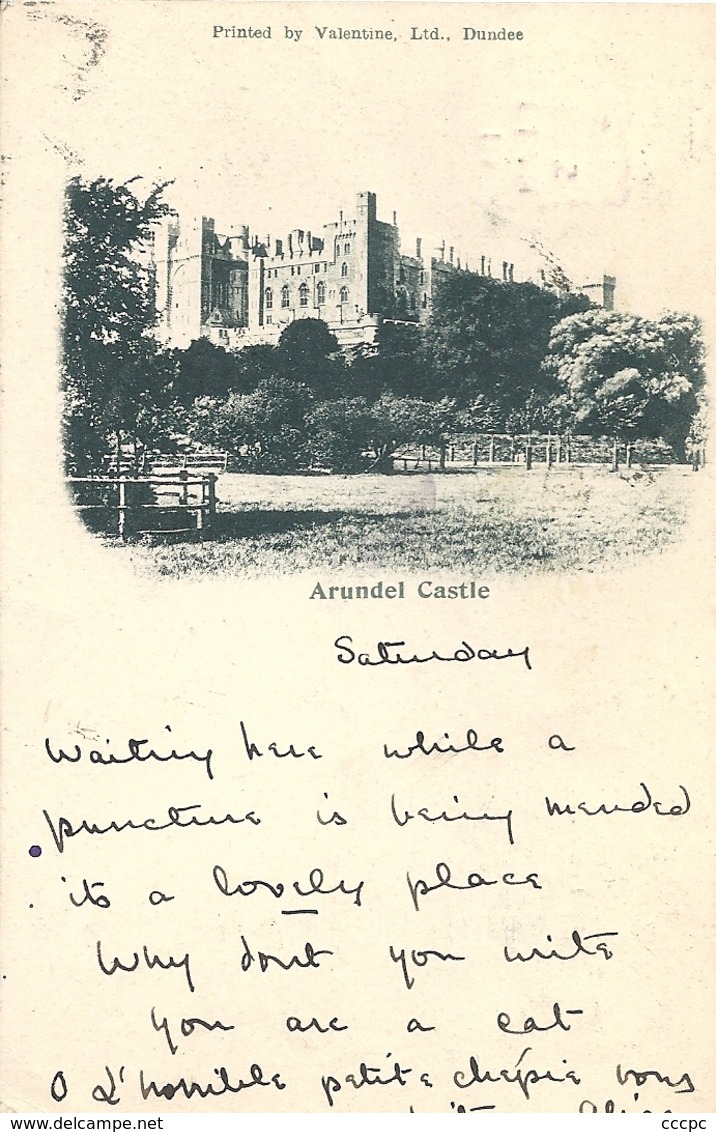 Printed by Valentine, Ltd., Dundee
Arundel Castle
Saturday
Waiting here while a
puncture is being mended
its a lovely place
Why dont you write
You are a cat
O L'horrible petite chépie vous
Alice
www.delcampe.net
cccpc